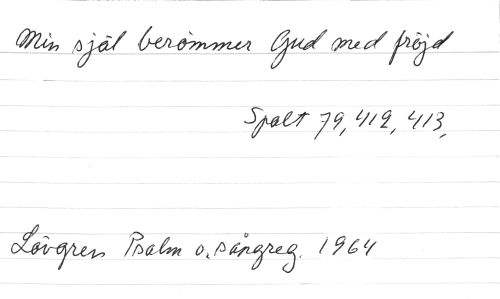 Min själ berömmer Gud med fröjd
Spalt 79, 412, 413,
Lövgren Psalm o. sångreg. 1964